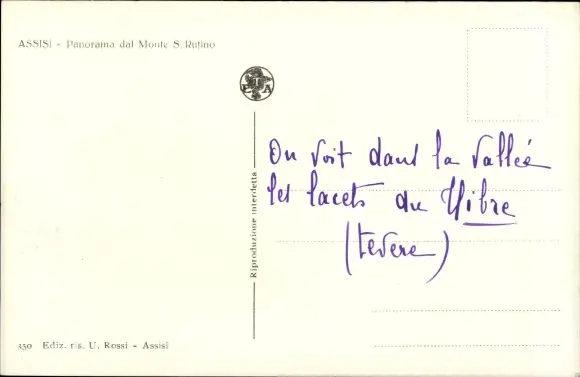 ASSISI - Panorama dal Monte S. Rufino
E A
On voit dans la vallée
les lacets du Tibre
(tevere)
Riproduzione interdetta
350 Ediz. ris. U. Rossi - Assisi